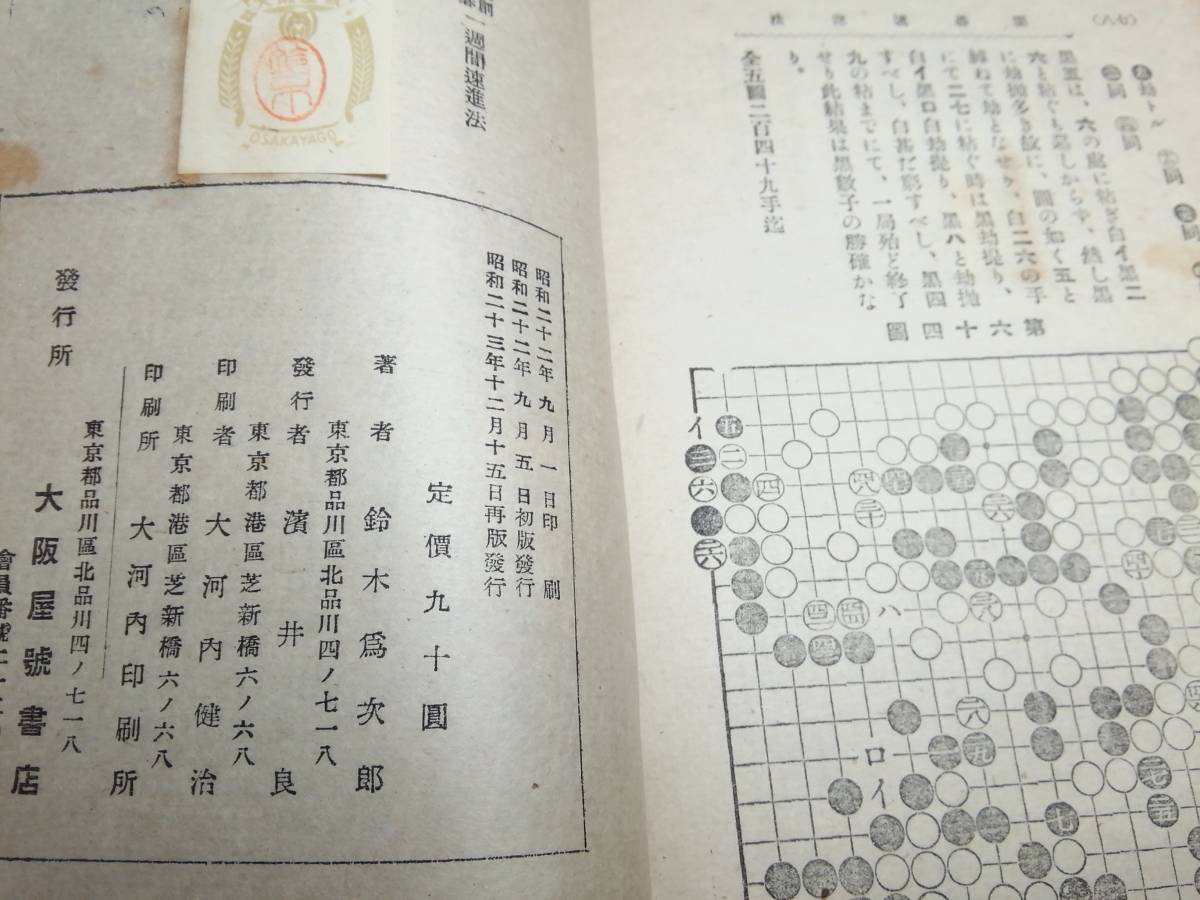 (八七)
㊄劫トル
黑五は、六の處に粘ぎ白イ黑二
六と粘ぐも惡しからず、然し黑
に劫抛多き故に、圖の如く五と
にて二七に粘ぐ時は黑劫提り、
白イ黑ロ白劫提り、黑ハと劫抛
すべし、白甚だ窮すべし、黑四
九の粘までにて、一局殆ど終了
せり此結果は黑數子の勝確かな
り。
全五圖二百四十九手迄
第六十四圖
イ
ハ
ロ
イ
一週間速進法
OSAKAYAGO
昭和二十二年九月一日印刷
昭和二十二年九月五日初版發行
昭和二十三年十二月十五日再版發行
定價九十圓
著者 鈴木爲次郎
東京都品川區北品川四ノ七一八
發行者 濱井良
東京都港區芝新橋六ノ六八
印刷者 大河內健治
東京都港區芝新橋六ノ六八
印刷所 大河內印刷所
東京都品川區北品川四ノ七一八
發行所 大阪屋號書店
會員番號